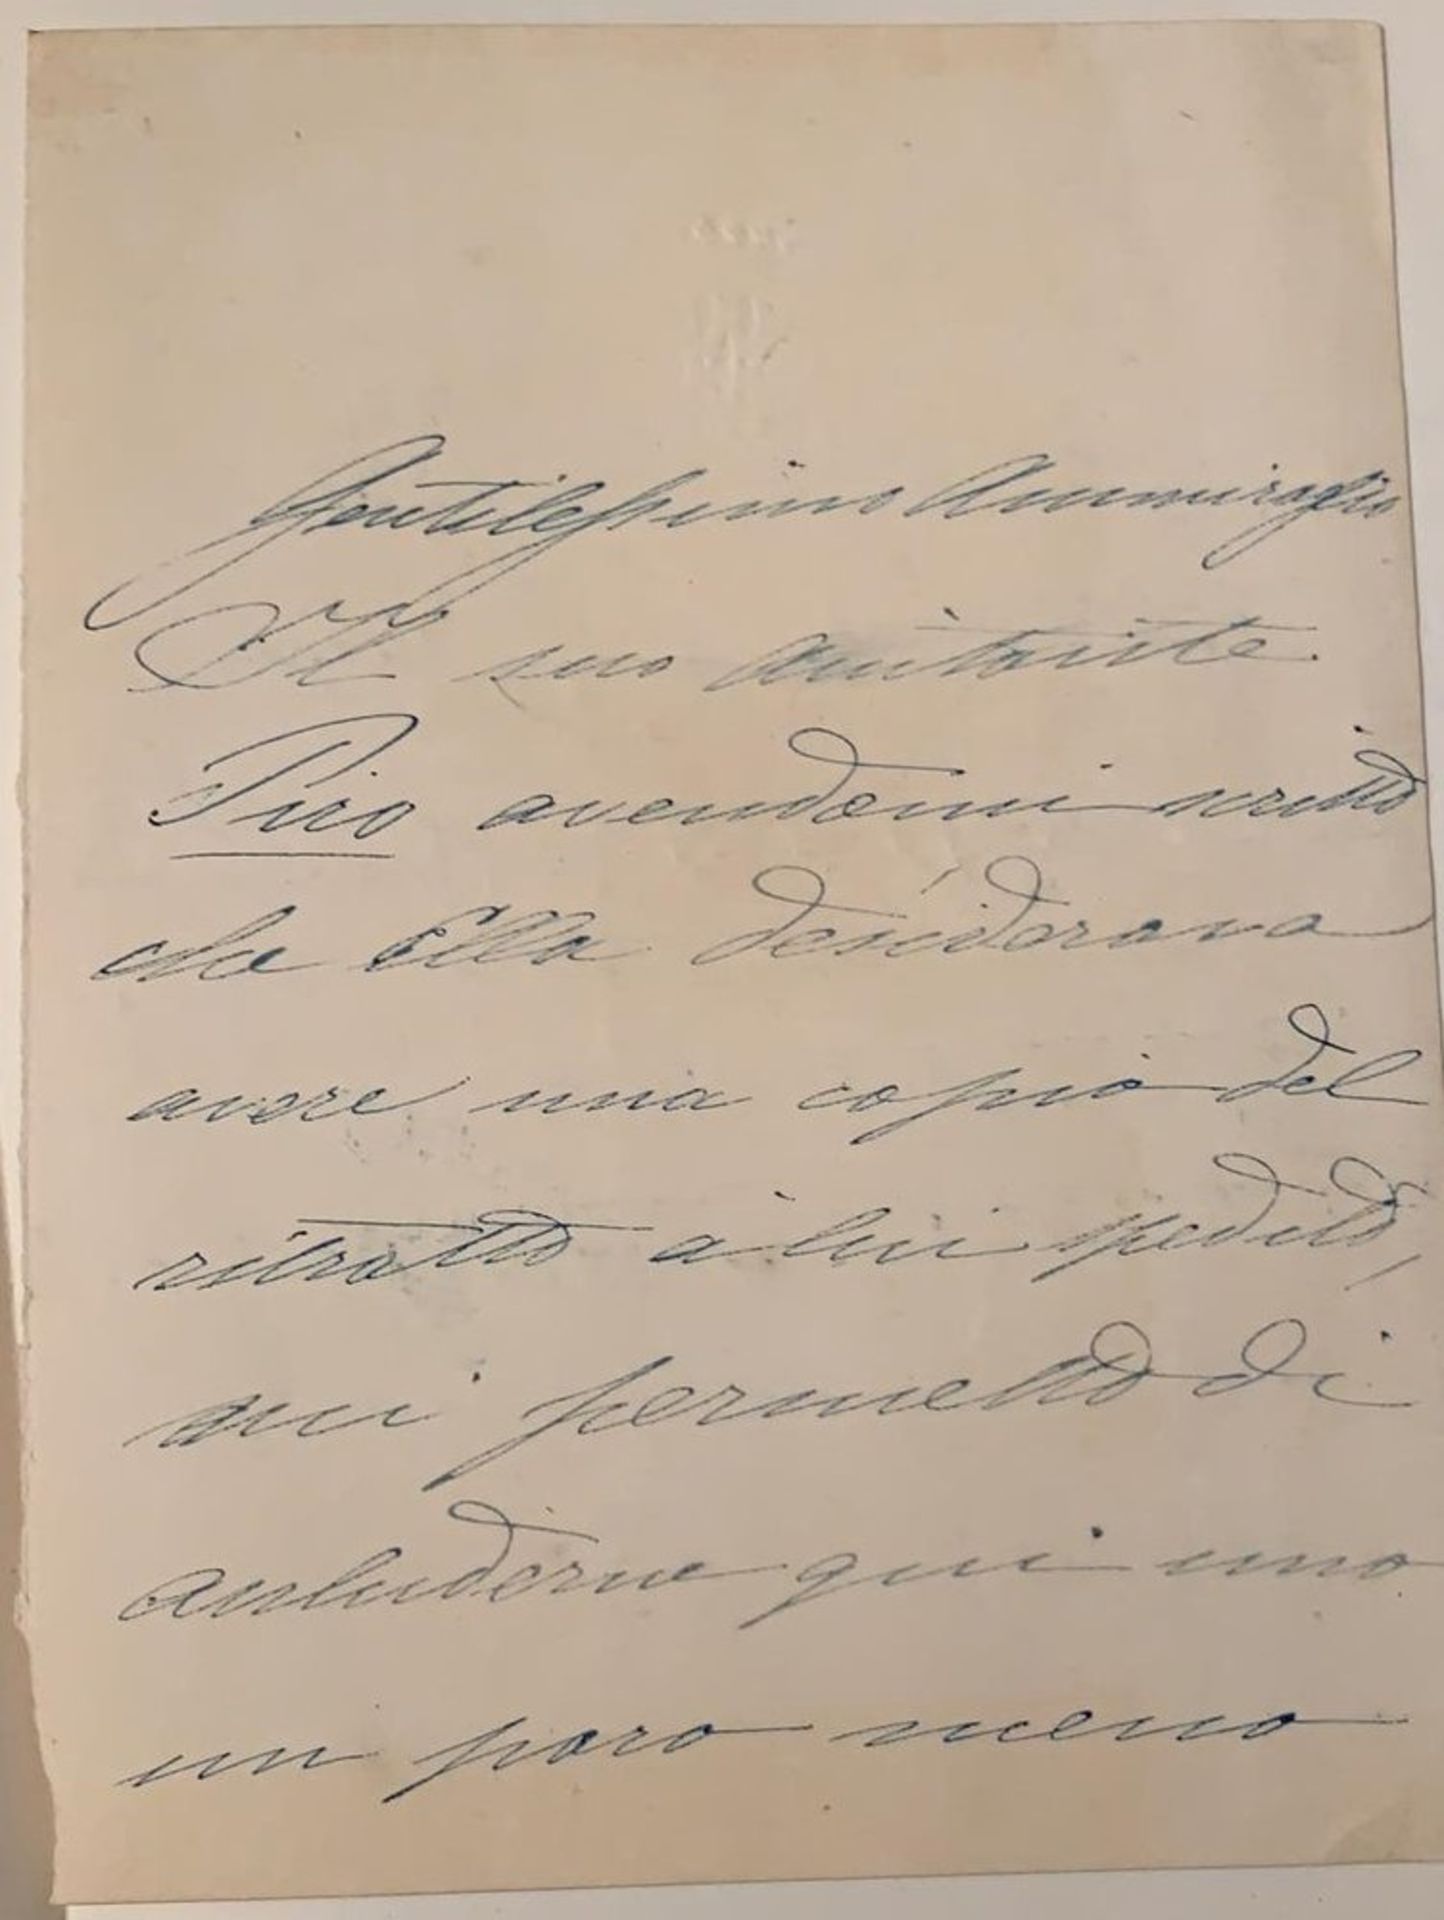 Gentilissimo Ammiraglio
Il suo
Piro avendomi scritto
che Ella desiderava
avere una copia del
ritratto a lui spedito,
mi permetto di
acchiuderne qui uno
un poco meno